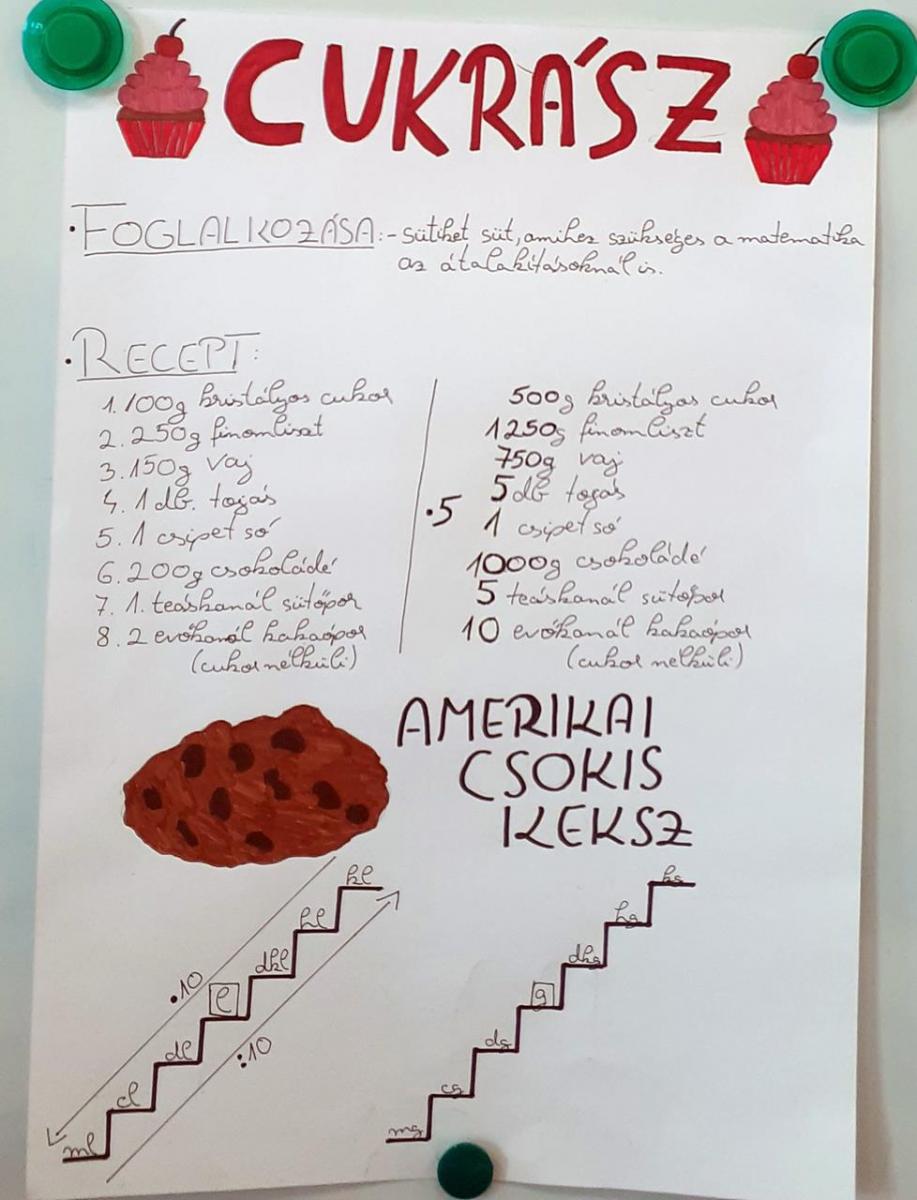 CUKRÁSZ
• FOGLALKOZÁSA: - sütiket süt, amihez szükséges a matematika
az átalakításoknál is.
• RECEPT:
1. 100g kristályos cukor
2. 250g finomliszt
3. 150g vaj
4. 1 db. tojás
5. 1 csipet só
6. 200g csokoládé
7. 1. teáskanál sütőpor
8. 2 evőkanál kakaópor
(cukor nélküli)
•5
500g kristályos cukor
1250g finomliszt
750g vaj
5 db tojás
1 csipet só
1000g csokoládé
5 teáskanál sütőpor
10 evőkanál kakaópor
(cukor nélküli)
AMERIKAI
CSOKIS
KEKSZ
kl
hl
dkl
l
dl
cl
ml
•10
:10
kg
hg
dkg
g
dg
cg
mg